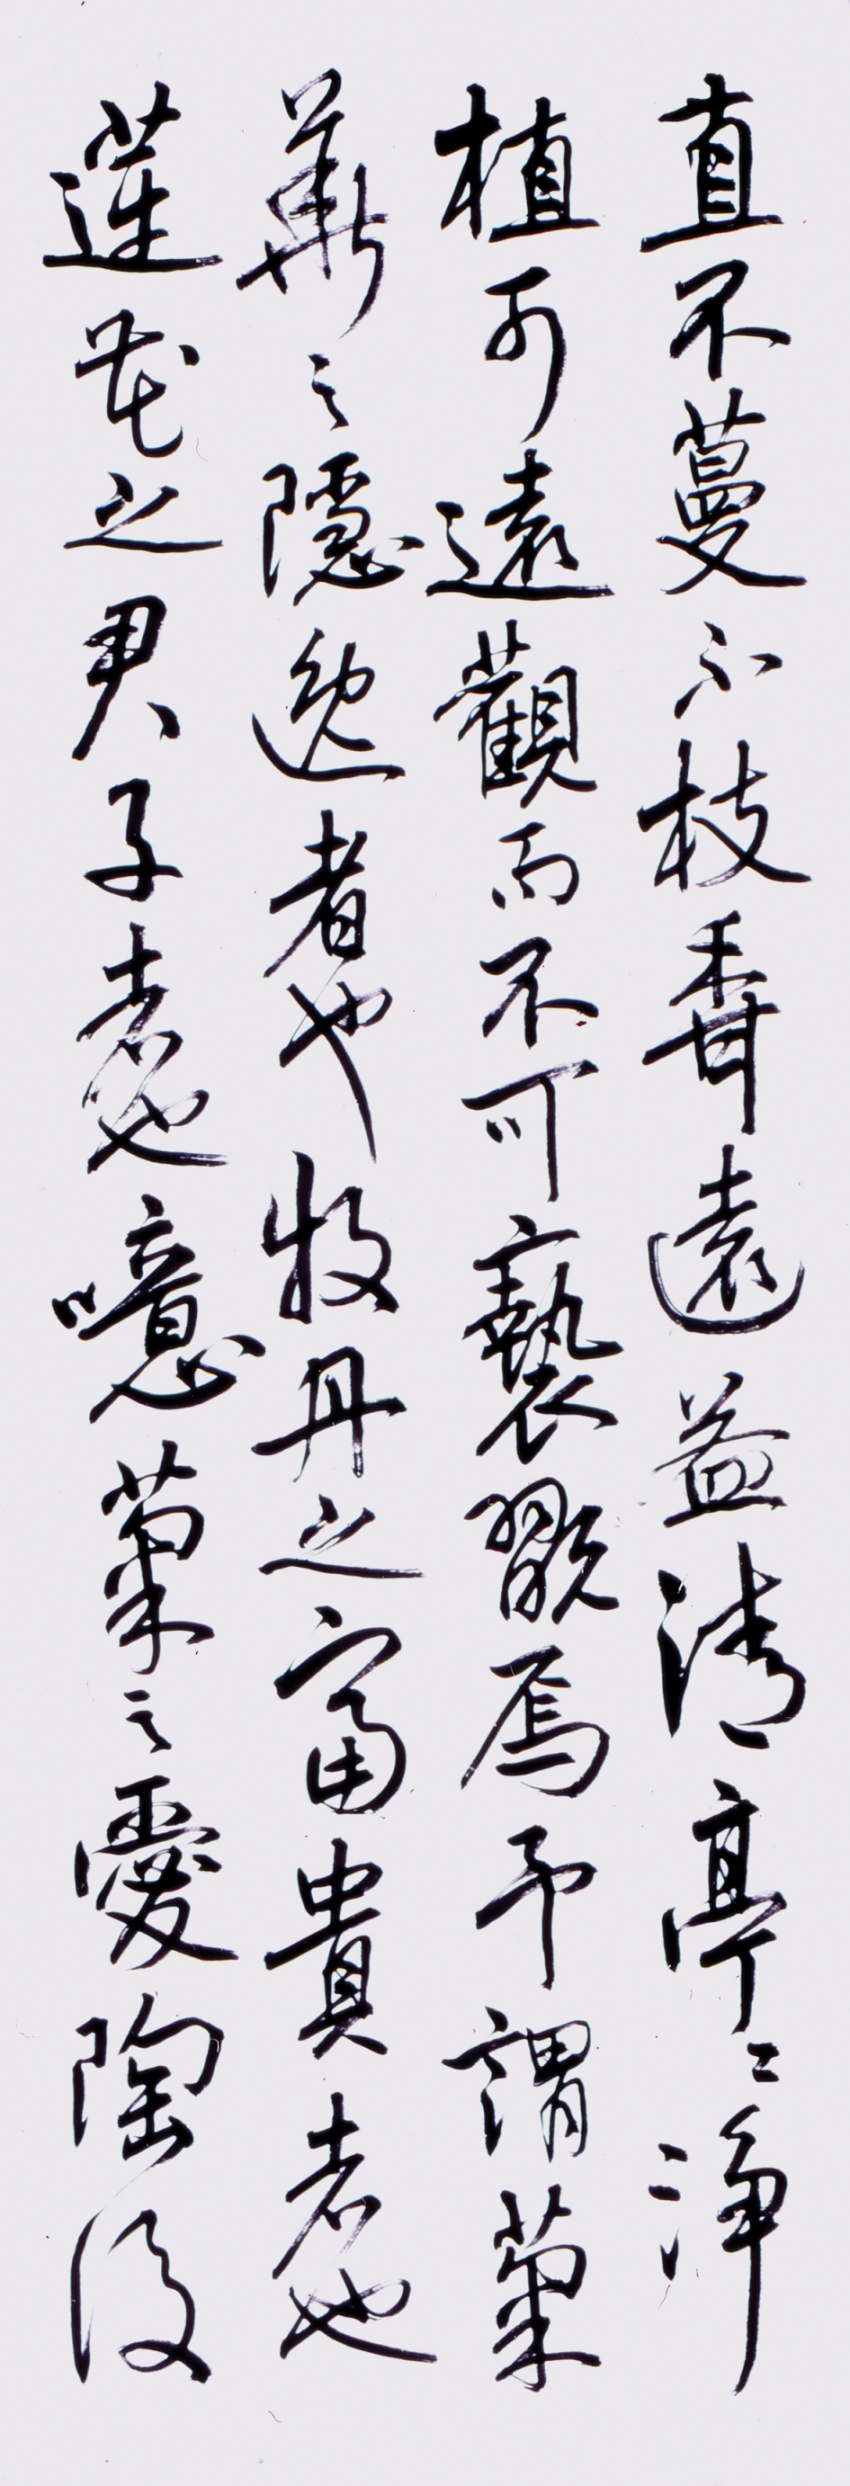 直不蔓不枝香遠益清亭〻淨
植可遠觀而不可褻翫焉予謂菊
華之隱逸者也牡丹之富貴者也
蓮花之君子者也噫菊之愛陶後